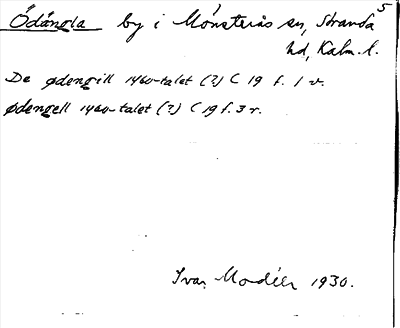 Ödängla by i Mönsterås sn, Stranda 5
hd, Kalm. l.
De ødengill 1460-talet (?) C 19 f. 1 v.
ødengell 1460-talet (?) C 19 f. 3 r.
Ivar Modéer 1930.